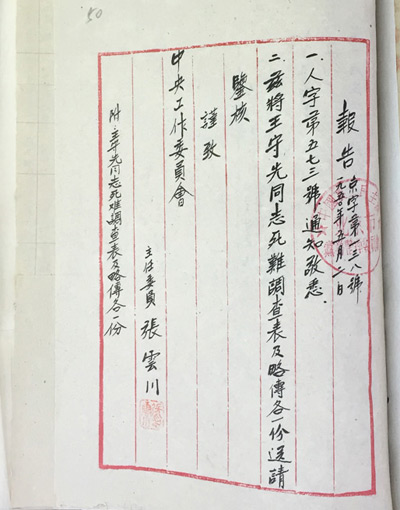 報告
京字第一三八號
一九五〇年五月 日
一.人字第五七三號通知敬悉.
二.茲將王守先同志死難調查表及略傳各一份送請
鑒核
謹致
中央工作委員會
主任委員 張雲川
附:王守先同志死难調查表及略傳各一份
50